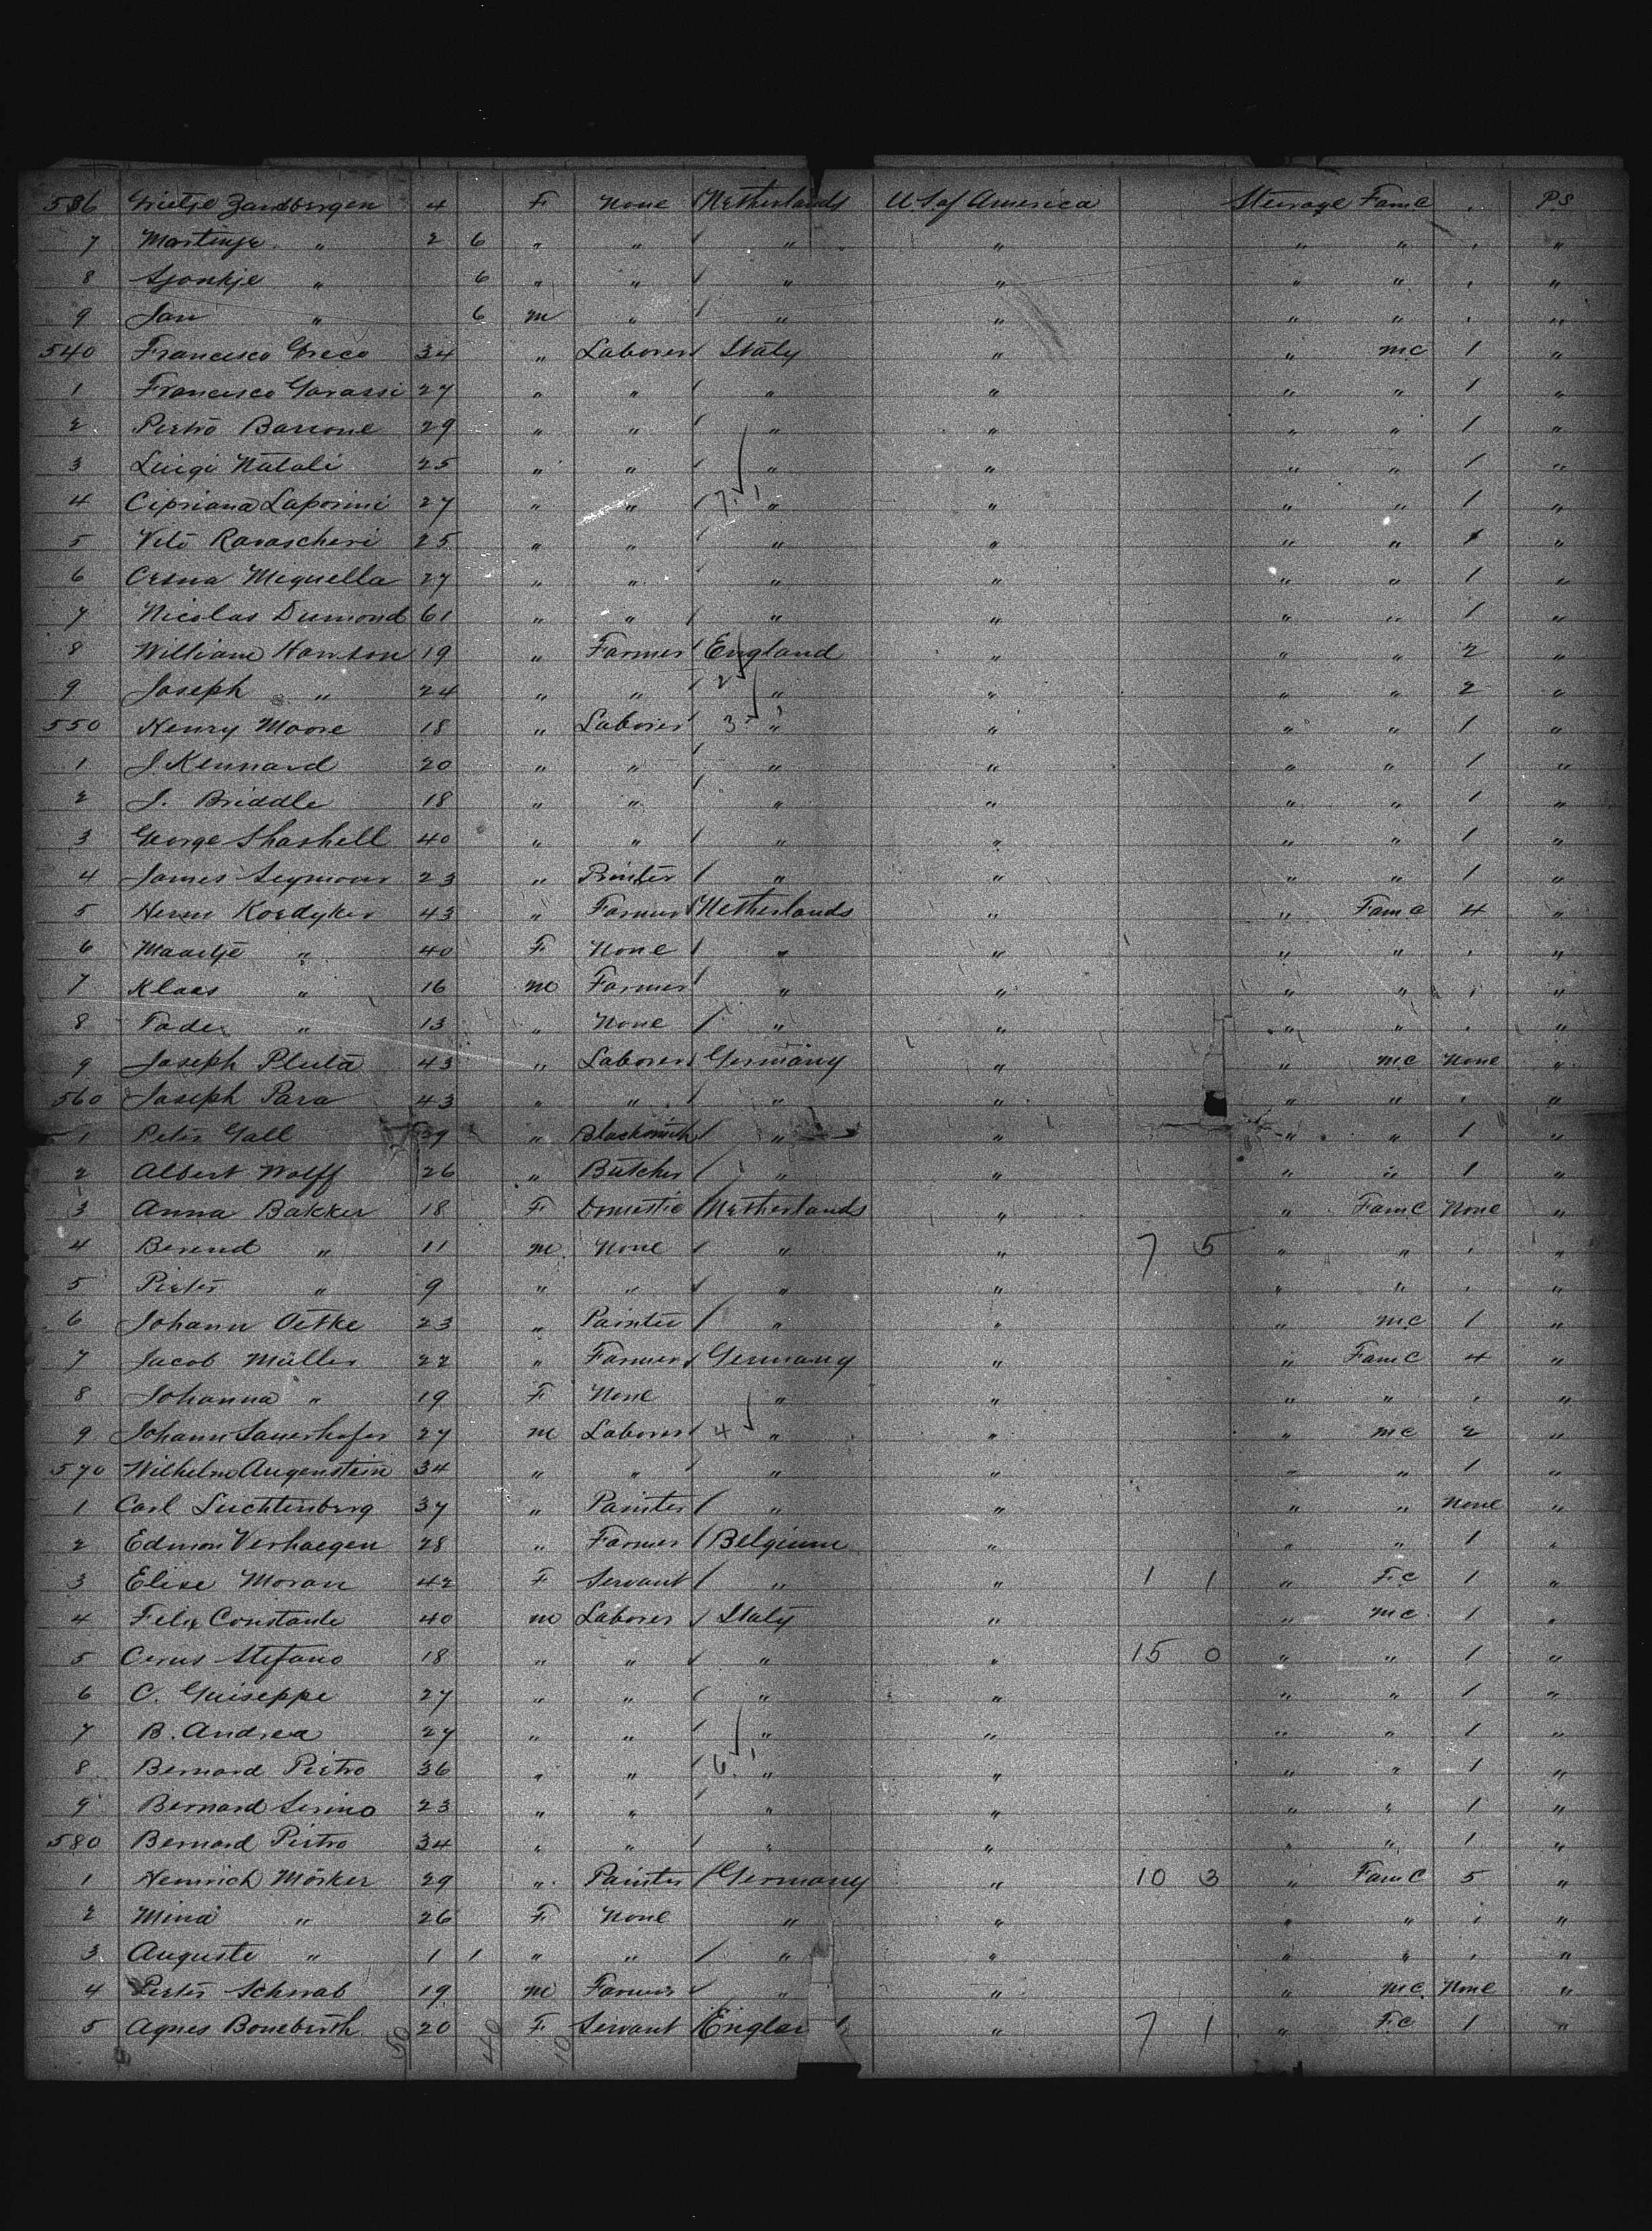 536 Grietje Zandbergen 4 F. None Netherlands U.S. of America Steerage Fam C . P.S
7 Martinje " 2 6 " " " " " " . "
8 Sjoukje " 6 " " " " " " . "
9 Jan " 6 m " " " " " . "
540 Francisco Greco 34 " Laborer Italy " " m.c 1 "
1 Francisco Garassi 27 " " " " " " 1 "
2 Pietro Barrone 29 " " " " " " 1 "
3 Luigi Natali 25 " " " " " " 1 "
4 Cipriana Laporini 27 " " 7. " " " " 1 "
5 Vito Ravascheri 25 " " " " " " 1 "
6 Miguella 27 " " " " " " 1 "
7 Nicolas Dumond 61 " " " " " " 1 "
8 William 19 " Farmer England " " " 2 "
9 Joseph " 24 " " 2 " " " " 2 "
550 Henry Moore 18 " Laborer 3 " " " " 1 "
1 J. Kennard 20 " " " " " " 1 "
2 J. Briddle 18 " " " " " " 1 "
3 George Shashell 40 " " " " " " 1 "
4 James Seymour 23 " Printer " " " " 1 "
5 Herm Koedyker 43 " Farmer Netherlands " " Fam C 4 "
6 Maartje " 40 F. None " " " " . "
7 Klaas " 16 m Farmer " " " " . "
8 " 13 " None " " " " . "
9 Joseph Pluta 43 " Laborer Germany " " m.c None "
560 Joseph Para 43 " " " " " " . "
1 Peter Gall 39 " Blacksmith " " " " 1 "
2 Albert Wolff 26 " Butcher " " " " 1 "
3 Anna Bakker 18 F. Domestic Netherlands " " Fam C None "
4 Berend " 11 m. None " " 7 5 " " . "
5 Pieter " 9 " " " " " " . "
6 Johann Oetke 23 " Painter " " " m.c 1 "
7 Jacob Müller 22 " Farmer Germany " " Fam C 4 "
8 Johanna " 19 F. None " " " " . "
9 Johann Sauerhofer 27 m Laborer 4 " " " m.c 2 "
570 Wilhelm Augenstein 34 " " " " " " 1 "
1 Carl Luchtenberg 37 " Painter " " " " None "
2 Edmon Verhaegen 28 " Farmer Belgium " " " 1 "
3 Elise Moran 42 F Servant " " 1 1 " F.C 1 "
4 Felix Constante 40 m Laborer Italy " " m.c. 1 "
5 Stefano 18 " " " " 15 0 " " 1 "
6 C. Guiseppe 27 " " " " " " 1 "
7 B. Andrea 27 " " " " " " 1 "
8 Bernard Pietro 36 " " 6. " " " " 1 "
9 Bernard Serino 23 " " " " " " 1 "
580 Bernard Pietro 34 " " " " " " 1 "
1 Heinrich Mörker 29 " Painter Germany " 10 3 " Fam C 5 "
2 Mina " 26 F. None " " " " . "
3 Auguste " 1 1 " " " " " " . "
4 Peter Schwab 19 m Farmer " " " m.c. None "
5 Agnes 20 F. Servant Englan " 7 1 " F.C 1 "
50 40 10